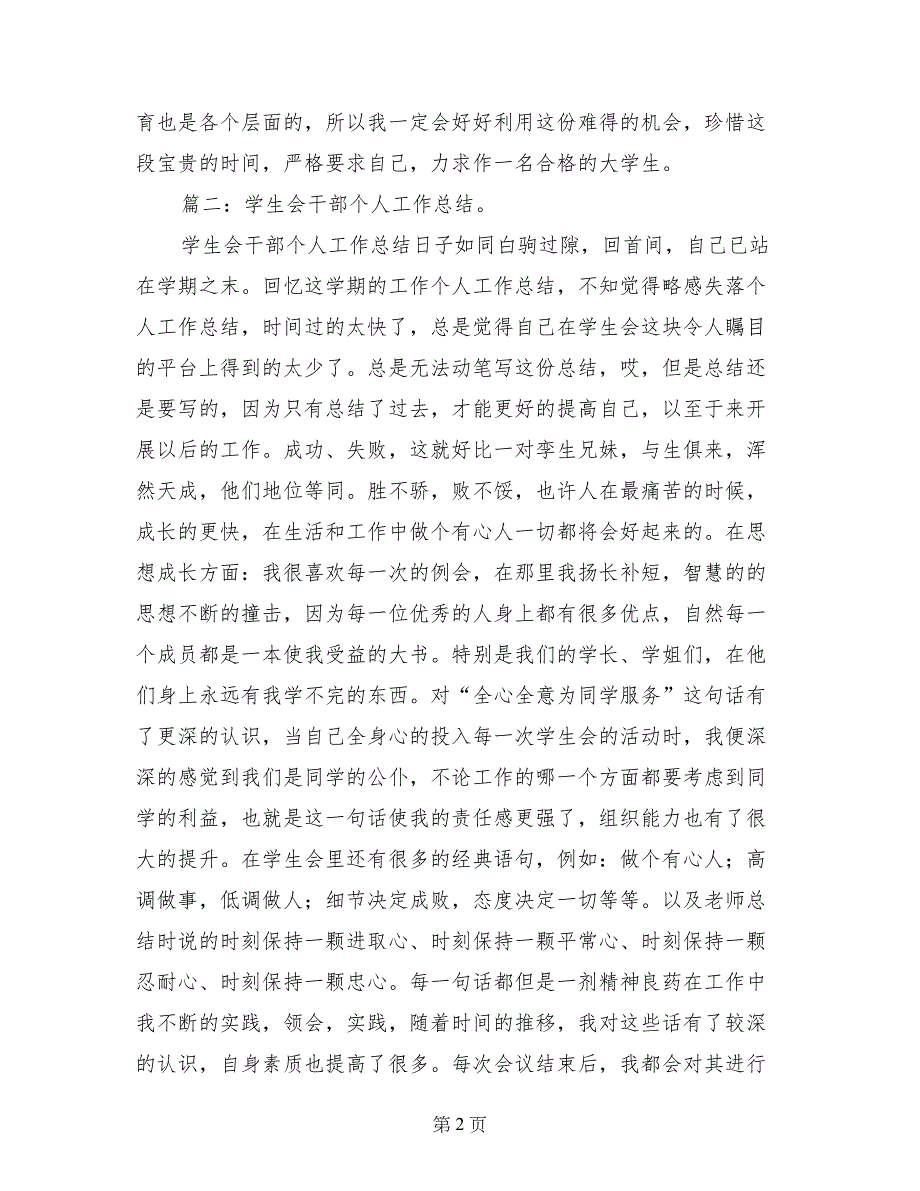 育也是各个层面的，所以我一定会好好利用这份难得的机会，珍惜这
段宝贵的时间，严格要求自己，力求作一名合格的大学生。
篇二：学生会干部个人工作总结。
学生会干部个人工作总结日子如同白驹过隙，回首间，自己已站
在学期之末。回忆这学期的工作个人工作总结，不知觉得略感失落个
人工作总结，时间过的太快了，总是觉得自己在学生会这块令人瞩目
的平台上得到的太少了。总是无法动笔写这份总结，哎，但是总结还
是要写的，因为只有总结了过去，才能更好的提高自己，以至于来开
展以后的工作。成功、失败，这就好比一对孪生兄妹，与生俱来，浑
然天成，他们地位等同。胜不骄，败不馁，也许人在最痛苦的时候，
成长的更快，在生活和工作中做个有心人一切都将会好起来的。在思
想成长方面：我很喜欢每一次的例会，在那里我扬长补短，智慧的的
思想不断的撞击，因为每一位优秀的人身上都有很多优点，自然每一
个成员都是一本使我受益的大书。特别是我们的学长、学姐们，在他
们身上永远有我学不完的东西。对“全心全意为同学服务”这句话有
了更深的认识，当自己全身心的投入每一次学生会的活动时，我便深
深的感觉到我们是同学的公仆，不论工作的哪一个方面都要考虑到同
学的利益，也就是这一句话使我的责任感更强了，组织能力也有了很
大的提升。在学生会里还有很多的经典语句，例如：做个有心人；高
调做事，低调做人；细节决定成败，态度决定一切等等。以及老师总
结时说的时刻保持一颗进取心、时刻保持一颗平常心、时刻保持一颗
忍耐心、时刻保持一颗忠心。每一句话都但是一剂精神良药在工作中
我不断的实践，领会，实践，随着时间的推移，我对这些话有了较深
的认识，自身素质也提高了很多。每次会议结束后，我都会对其进行
第 2 页